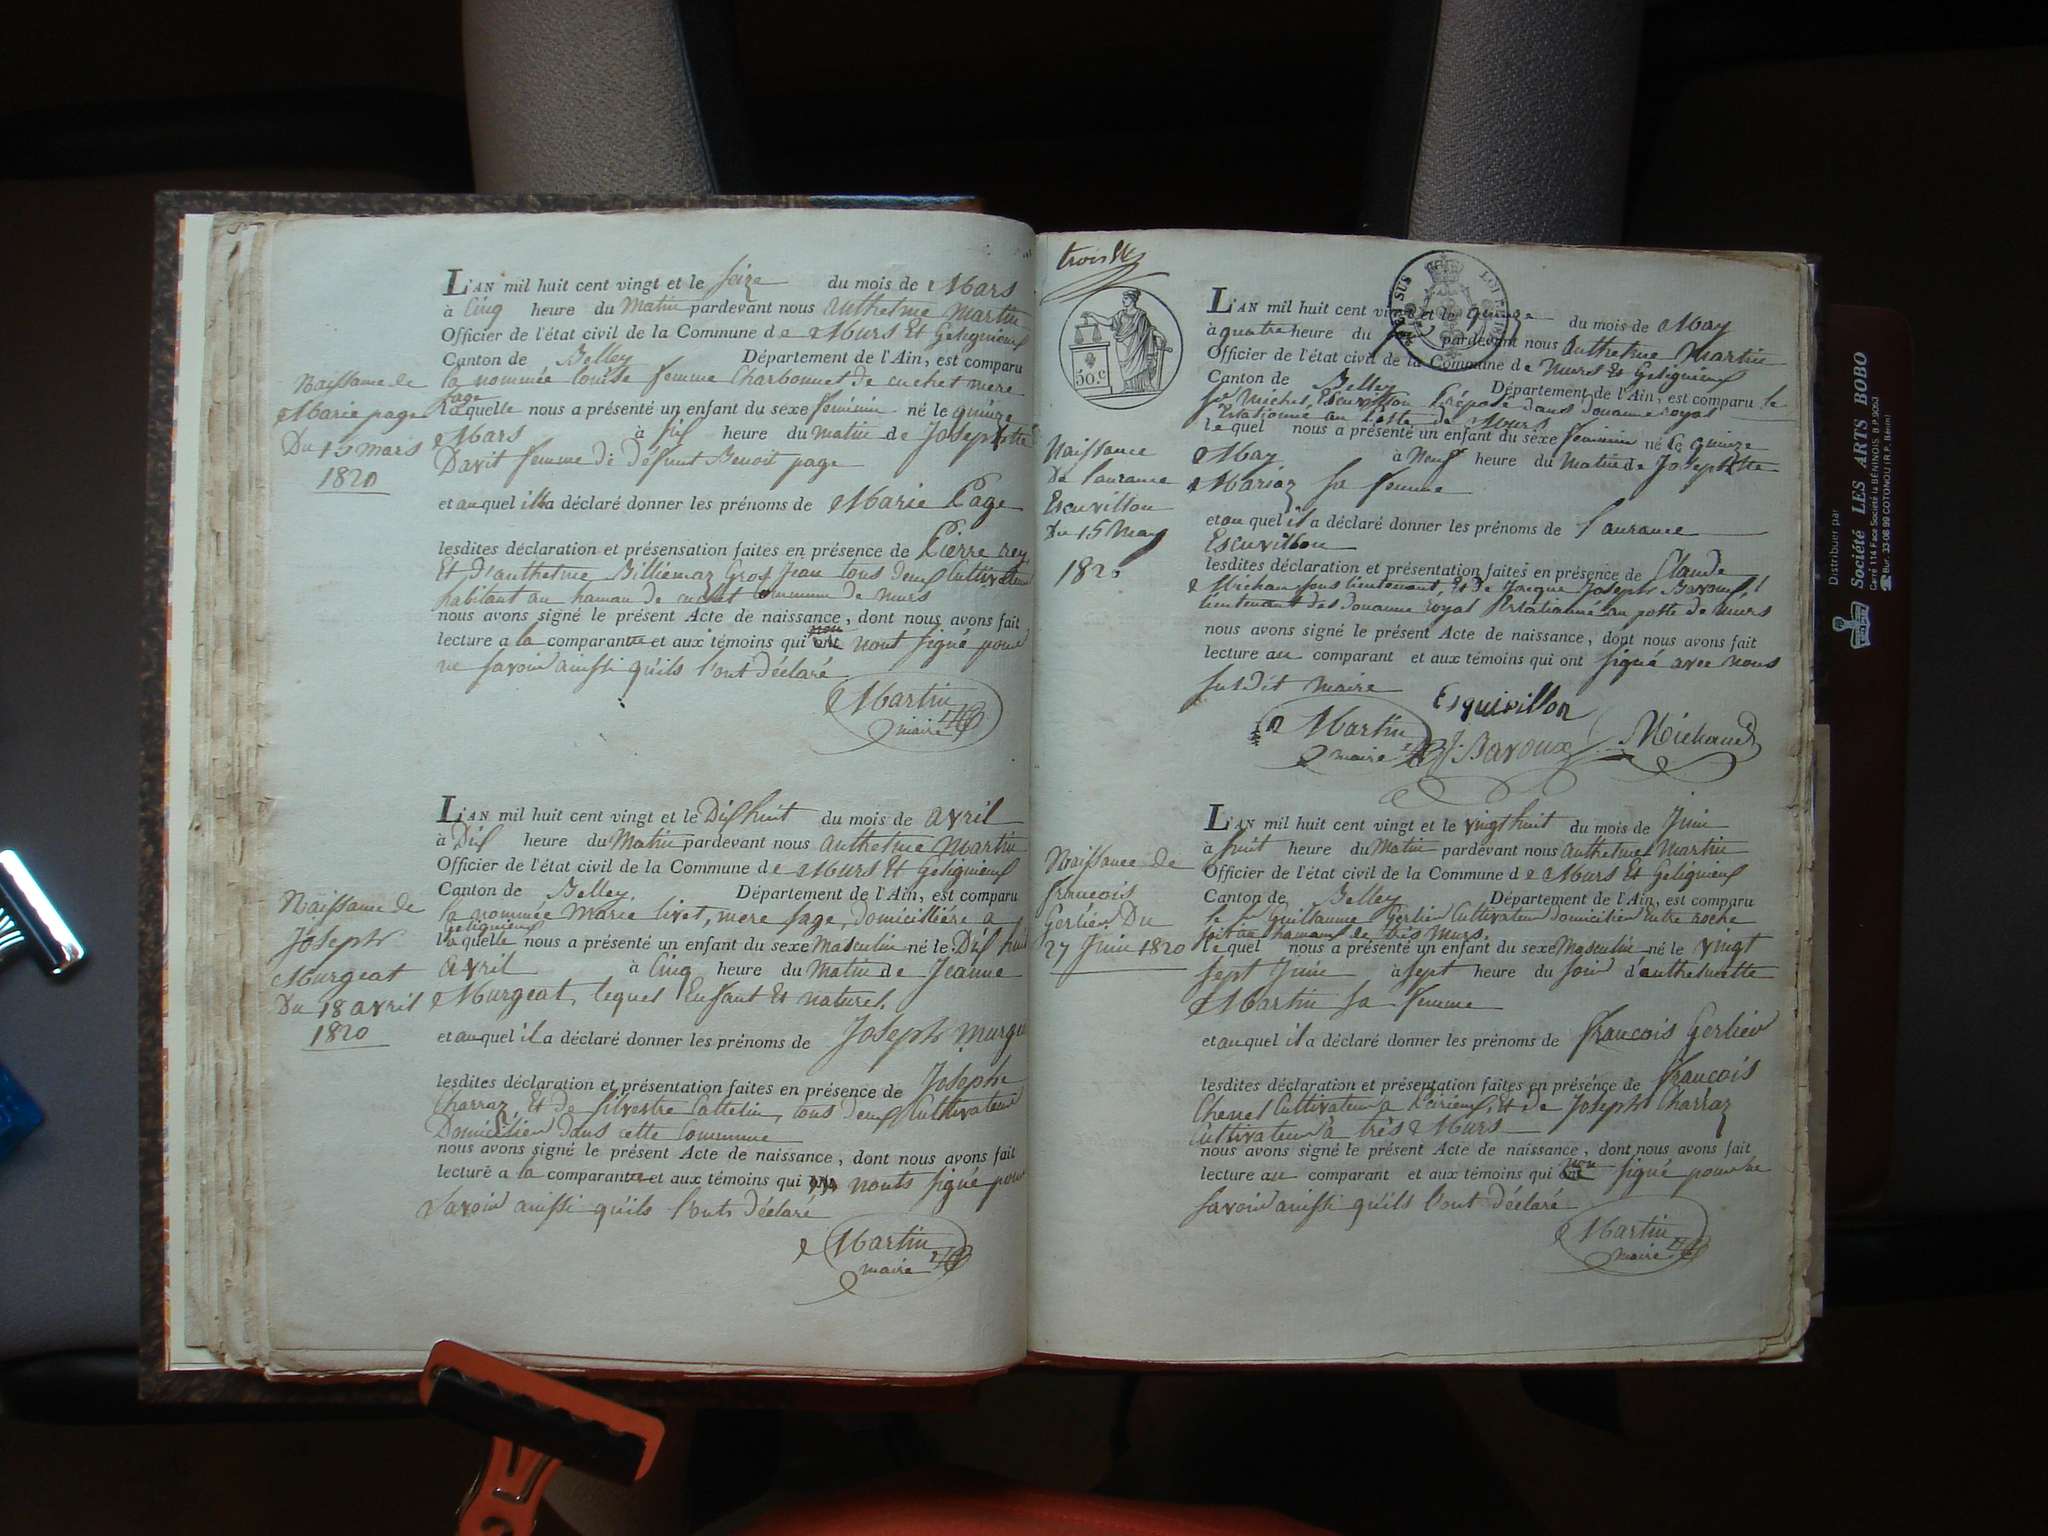 L'AN mil huit cent vingt et le seize du mois de Mars
à Cinq heure du Matin pardevant nous anthelme Martin
Officier de l'état civil de la Commune de Murs Et Gelignieux
Canton de Belley Département de l'Ain, est comparu
la nommée louise femme Charbonnet de cuchet mere
sage
laquelle nous a présenté un enfant du sexe feminin né le quinze
Mars à six heure du matin de Josephtte
Davit femme de défunt Benoit page
et auquel illa déclaré donner les prénoms de Marie Page
lesdites déclaration et présensation faites en présence de Pierre rey
Et d'anthelme Billiemaz Gros Jean tous deux Cultivateurs
habitant au hamau de cuchet commune de murs
nous avons signé le présent Acte de naissance, dont nous avons fait
lecture a la comparante et aux témoins qui nont signé pour
ne savoir ainssi qu'ils l'ont déclaré
Martin
maire
Naissance de
Marie page
Du 15 mars
1820
L'AN mil huit cent vingt et le Dix huit du mois de avril
à Dix heure du Matin pardevant nous anthelme Martin
Officier de l'état civil de la Commune de Murs Et Gelignieux
Canton de Belley Département de l'Ain, est comparu
la nommée Marie livet, mere sage, domicilliére a
Gelignieux
laquelle nous a présenté un enfant du sexe Masculin né le Dix huit
avril à Cinq heure du Matin de Jeanne
Murgeat, lequel Enfant Et naturel.
et auquel il a déclaré donner les prénoms de Joseph murgea
lesdites déclaration et présentation faites en présence de Josephe
Charraz, Et de Silvestre Cattelin, tous deux Cultivateurs
Domicilier dans cette Commune
nous avons signé le présent Acte de naissance, dont nous avons fait
lecture a la comparante et aux témoins qui nonts signé pour
savoir ainssi qu'ils l'onts déclaré
Martin
maire
Naissance de
Joseph
Murgeat
Du 18 avril
1820
trois
50.C
L'AN mil huit cent vingt et le quinze du mois de May
à quatre heure du pardevant nous anthelme Martin
Officier de l'état civil de la Commune de Murs Et Gelignieux
Canton de Belley Département de l'Ain, est comparu le
Sr Michel Escuvillon Préposé dans douane royal
Estationné au Poste de Murs
lequel nous a présenté un enfant du sexe feminin né le quinze
May à Neuf heure du Matin de Josephtte
Mariaz sa femme
et au quel il a déclaré donner les prénoms de laurance
Escuvillon
lesdites déclaration et présentation faites en présence de Claude
Michau sous lieutenant, Et de Jacque Joseph Bavoux
lieutenant des douane royal Estationné au poste de murs
nous avons signé le présent Acte de naissance, dont nous avons fait
lecture au comparant et aux témoins qui ont signé avec nous
susdit maire
Esquivillon
Martin
maire
J. Bavoux
Michaud
Naissance
De laurance
Escuvillon
Du 15 May
1820
L'AN mil huit cent vingt et le vingt huit du mois de Juin
à huit heure du Matin pardevant nous anthelme Martin
Officier de l'état civil de la Commune de Murs Et Gelignieux
Canton de Belley Département de l'Ain, est comparu
le Sr Guillaume Gerlier Cultivateur Domicilier Entre roche
soit au hamau de très Murs.
lequel nous a présenté un enfant du sexe Masculin né le vingt
sept Juin à sept heure du soir d'anthelmette
Martin sa femme
et auquel il a déclaré donner les prénoms de francois Gerlier
lesdites déclaration et présentation faites en présence de francois
Chenel Cultivateur a Peirieux, Et de Joseph Charraz
Cultivateur à très Murs
nous avons signé le présent Acte de naissance, dont nous avons fait
lecture au comparant et aux témoins qui non signé pour ne
savoir ainssi qu'ils l'ont déclaré
Martin
maire
Naissance de
francois
Gerlier Du
27 Juin 1820
Distribuer par
Société LES ARTS BOBO
Carré 114 Face Société la BÉNINOIS B.P. 9053
Bur. 33 06 99 COTONOU (R.P. Bénin)